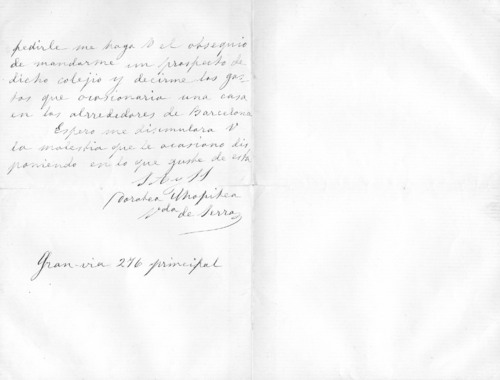 pedirle me haga V el obsequio
de mandarme un prospecto de
dicho colejio y decirme los gas
tos que ocasionaria una casa
en los alrrededores de Barcelona
Espero me disimulara V
la molestia que le ocasiono dis
poniendo en lo que guste de esta
S. A. y SS
Dorotea Chopitea
Vda de Serra
Gran-via 276 principal